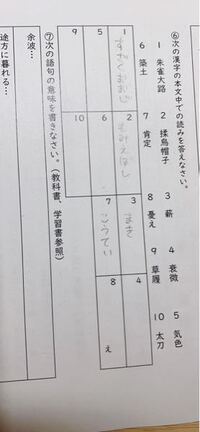 ⑥次の漢字の本文中での読みを答えなさい。
1 朱雀大路
2 揉烏帽子
3 薪
4 衰微
5 気色
6 築土
7 肯定
8 憂え
9 草履
10 太刀
1 すざくおおじ
2 もみえぼし
3 まき
4
5
6
7 こうてい
8 え
9
10
⑦次の語句の意味を書きなさい。(教科書、学習書参照)
余波…
途方に暮れる…